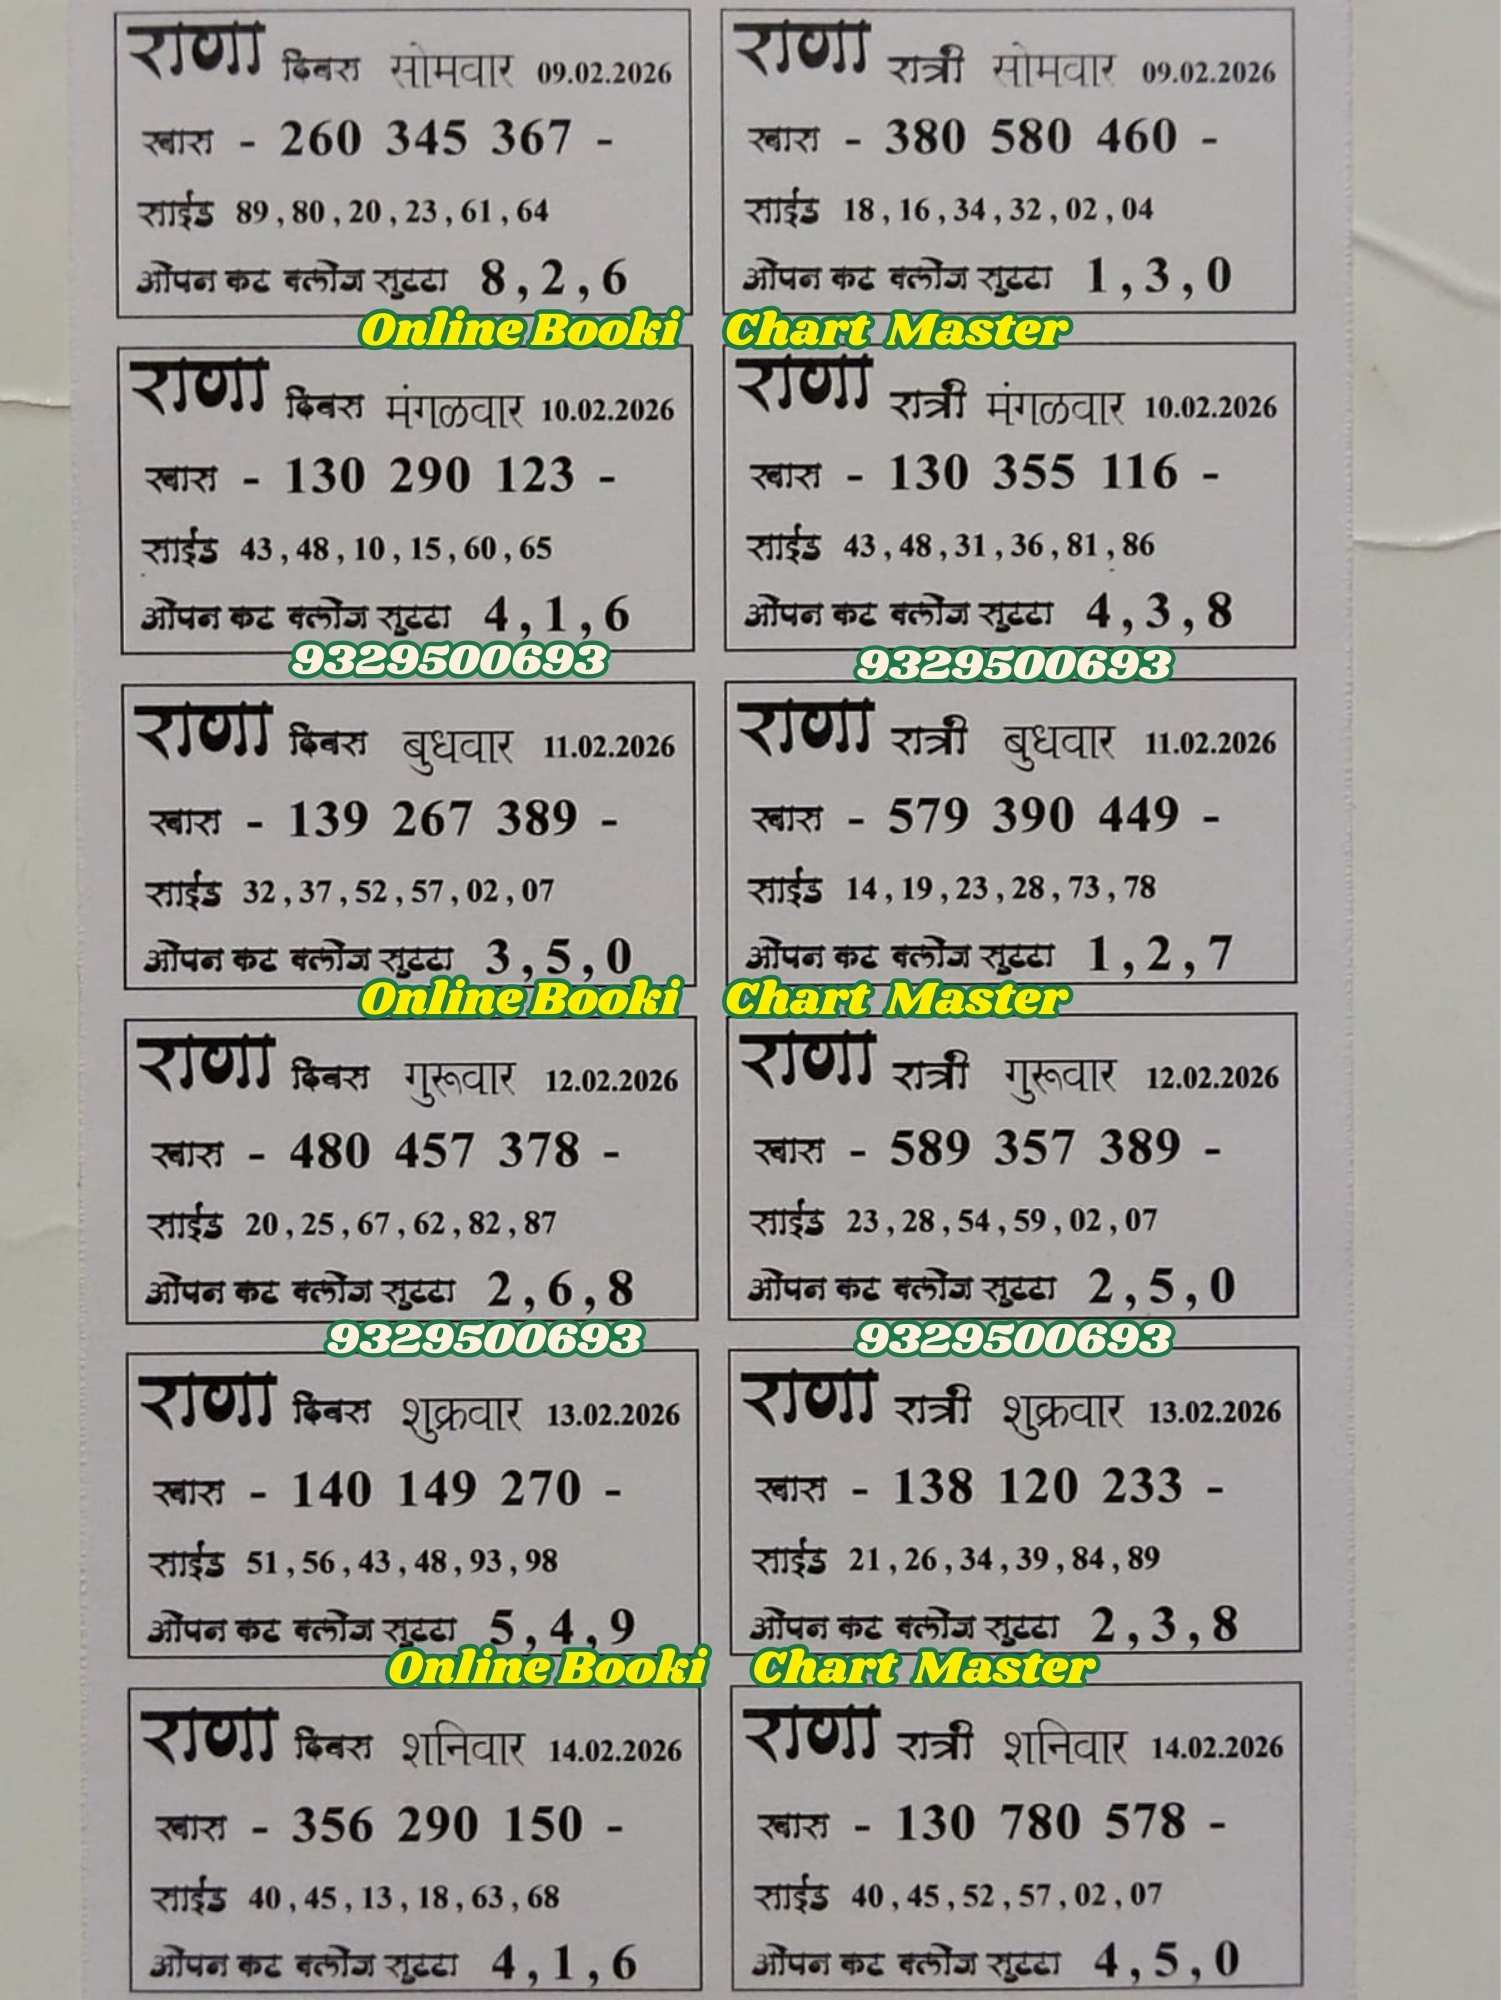 राणा दिवस सोमवार 09.02.2026
खास - 260 345 367 -
साईड 89 , 80 , 20 , 23 , 61 , 64
ओपन कट क्लोज सुटटा 8 , 2 , 6
राणा रात्री सोमवार 09.02.2026
खास - 380 580 460 -
साईड 18 , 16 , 34 , 32 , 02 , 04
ओपन कट क्लोज सुटटा 1 , 3 , 0
Online Booki Chart Master
राणा दिवस मंगळवार 10.02.2026
खास - 130 290 123 -
साईड 43 , 48 , 10 , 15 , 60 , 65
ओपन कट क्लोज सुटटा 4 , 1 , 6
9329500693
राणा रात्री मंगळवार 10.02.2026
खास - 130 355 116 -
साईड 43 , 48 , 31 , 36 , 81 , 86
ओपन कट क्लोज सुटटा 4 , 3 , 8
9329500693
राणा दिवस बुधवार 11.02.2026
खास - 139 267 389 -
साईड 32 , 37 , 52 , 57 , 02 , 07
ओपन कट क्लोज सुटटा 3 , 5 , 0
राणा रात्री बुधवार 11.02.2026
खास - 579 390 449 -
साईड 14 , 19 , 23 , 28 , 73 , 78
ओपन कट क्लोज सुटटा 1 , 2 , 7
Online Booki Chart Master
राणा दिवस गुरूवार 12.02.2026
खास - 480 457 378 -
साईड 20 , 25 , 67 , 62 , 82 , 87
ओपन कट क्लोज सुटटा 2 , 6 , 8
9329500693
राणा रात्री गुरूवार 12.02.2026
खास - 589 357 389 -
साईड 23 , 28 , 54 , 59 , 02 , 07
ओपन कट क्लोज सुटटा 2 , 5 , 0
9329500693
राणा दिवस शुक्रवार 13.02.2026
खास - 140 149 270 -
साईड 51 , 56 , 43 , 48 , 93 , 98
ओपन कट क्लोज सुटटा 5 , 4 , 9
राणा रात्री शुक्रवार 13.02.2026
खास - 138 120 233 -
साईड 21 , 26 , 34 , 39 , 84 , 89
ओपन कट क्लोज सुटटा 2 , 3 , 8
Online Booki Chart Master
राणा दिवस शनिवार 14.02.2026
खास - 356 290 150 -
साईड 40 , 45 , 13 , 18 , 63 , 68
ओपन कट क्लोज सुटटा 4 , 1 , 6
राणा रात्री शनिवार 14.02.2026
खास - 130 780 578 -
साईड 40 , 45 , 52 , 57 , 02 , 07
ओपन कट क्लोज सुटटा 4 , 5 , 0